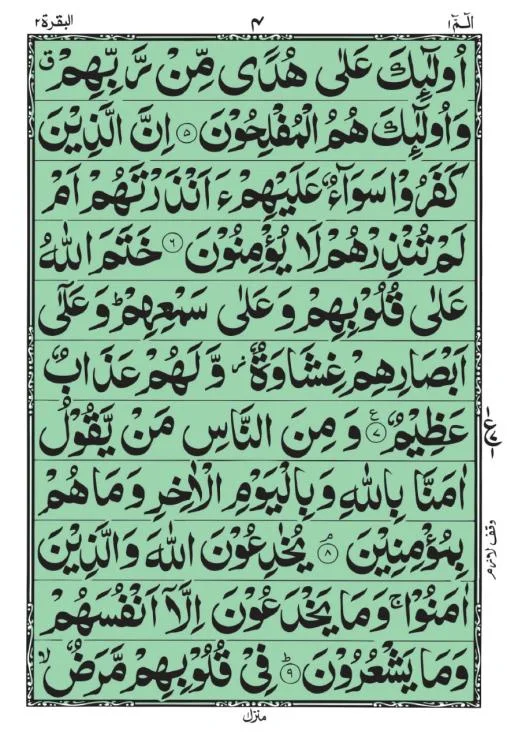 الٓمّٓ ١
٤
البقرة ٢
اُولٰٓئِكَ عَلٰى هُدًى مِّنْ رَّبِّهِمْ ۗ
وَاُولٰٓئِكَ هُمُ الْمُفْلِحُوْنَ ۝۵ اِنَّ الَّذِيْنَ
كَفَرُوْا سَوَآءٌ عَلَيْهِمْ ءَاَنْذَرْتَهُمْ اَمْ
لَمْ تُنْذِرْهُمْ لَا يُؤْمِنُوْنَ ۝۶ خَتَمَ اللّٰهُ
عَلٰى قُلُوْبِهِمْ وَعَلٰى سَمْعِهِمْ ؕ وَعَلٰٓى
اَبْصَارِهِمْ غِشَاوَةٌ ز وَّلَهُمْ عَذَابٌ
عَظِيْمٌ ۝۷ ع وَمِنَ النَّاسِ مَنْ يَّقُوْلُ
اٰمَنَّا بِاللّٰهِ وَبِالْيَوْمِ الْاٰخِرِ وَمَا هُمْ
بِمُؤْمِنِيْنَ ۘ۝۸ يُخٰدِعُوْنَ اللّٰهَ وَالَّذِيْنَ
اٰمَنُوْا ۚ وَمَا يَخْدَعُوْنَ اِلَّآ اَنْفُسَهُمْ
وَمَا يَشْعُرُوْنَ ؕ۝۹ فِيْ قُلُوْبِهِمْ مَّرَضٌ ۙ
وقف لازم
منزل